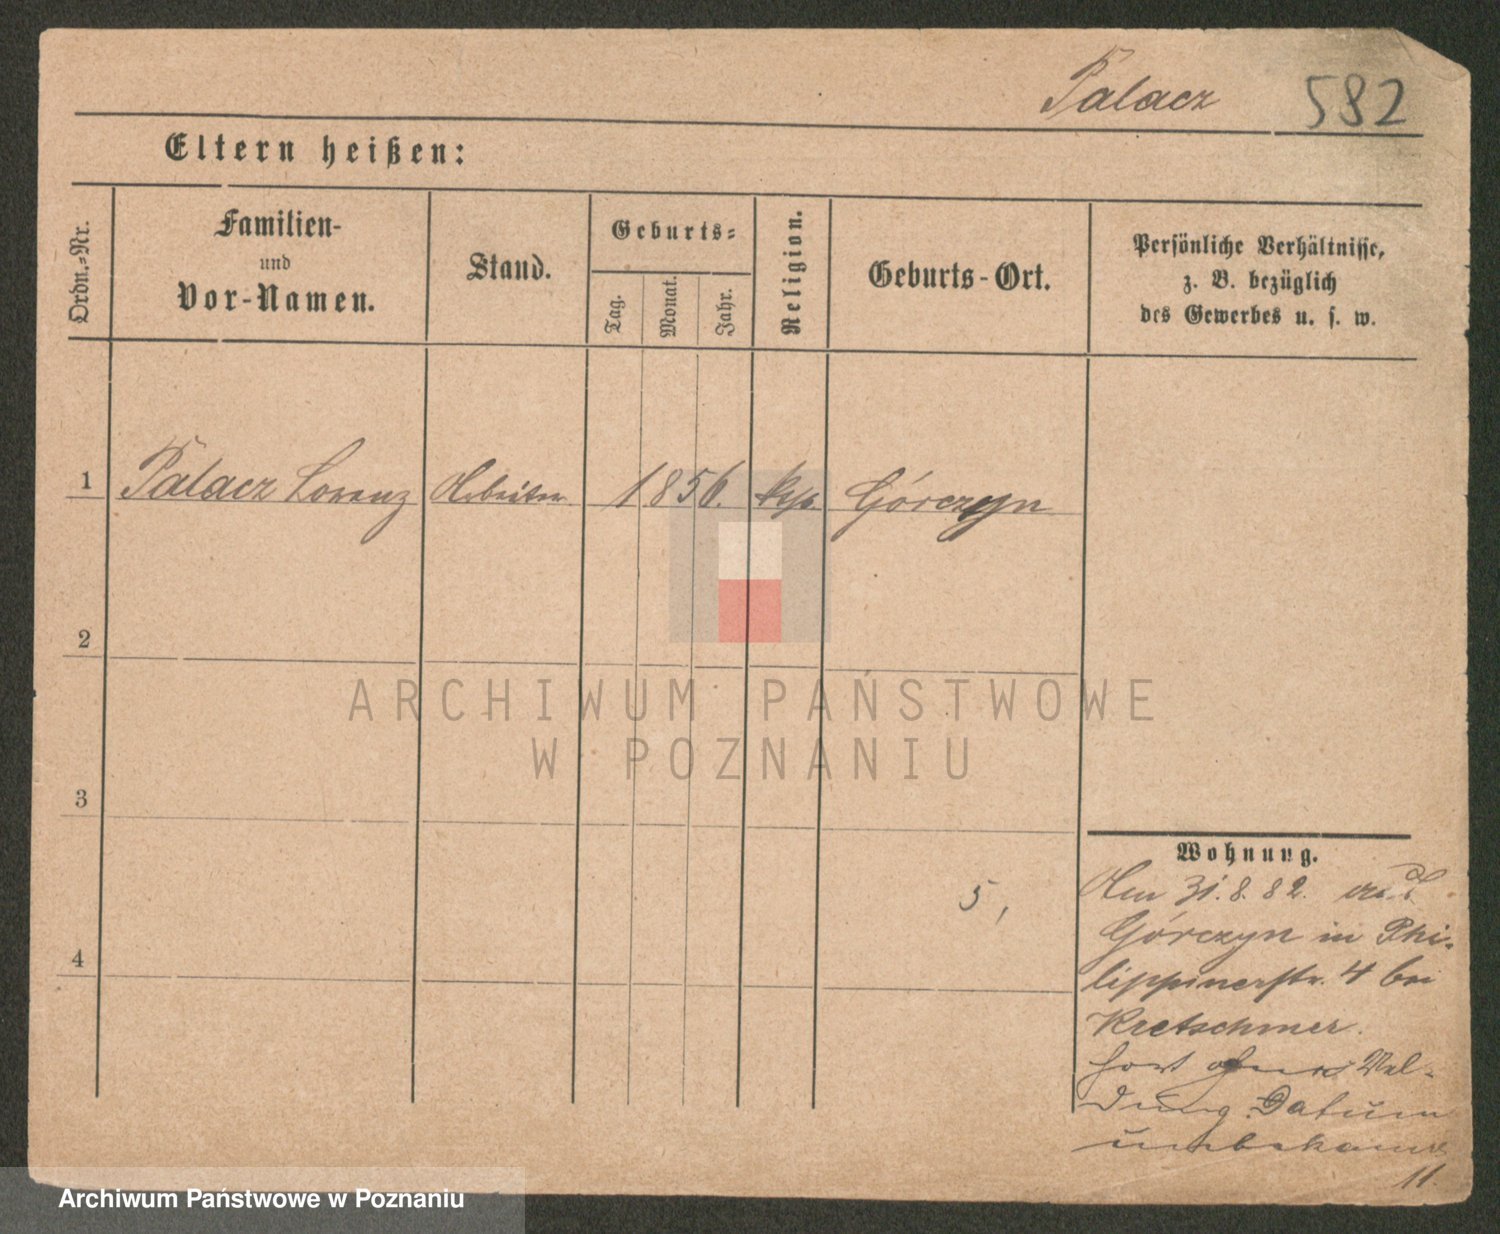 Palacz 582
Eltern heißen:
Ordn.-Nr.
Familien-
und
Vor-Namen.
Stand.
Geburts-
Tag.
Monat.
Jahr.
Religion.
Geburts-Ort.
Persönliche Verhältnisse,
z. B. bezüglich
des Gewerbes u. s. w.
1 Palacz Lorenz Arbeiter 1856. kath. Górczyn
2
3
4
5,
Wohnung.
Am 31.8.82.
Górczyn in Phi-
lippinerstr. 4 bei
Kretschmer.
fort ohne Mel-
dung. Datum
unbekannt
11.
ARCHIWUM PAŃSTWOWE
W POZNANIU
Archiwum Państwowe w Poznaniu